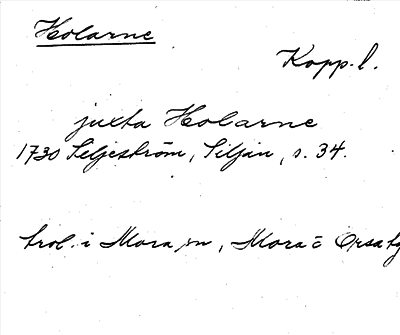 Holarne
Kopp. l.
juxta Holarne
1730 Seljeström, Siljan, s. 34.
trol. i Mora sn, Mora o Orsa tg